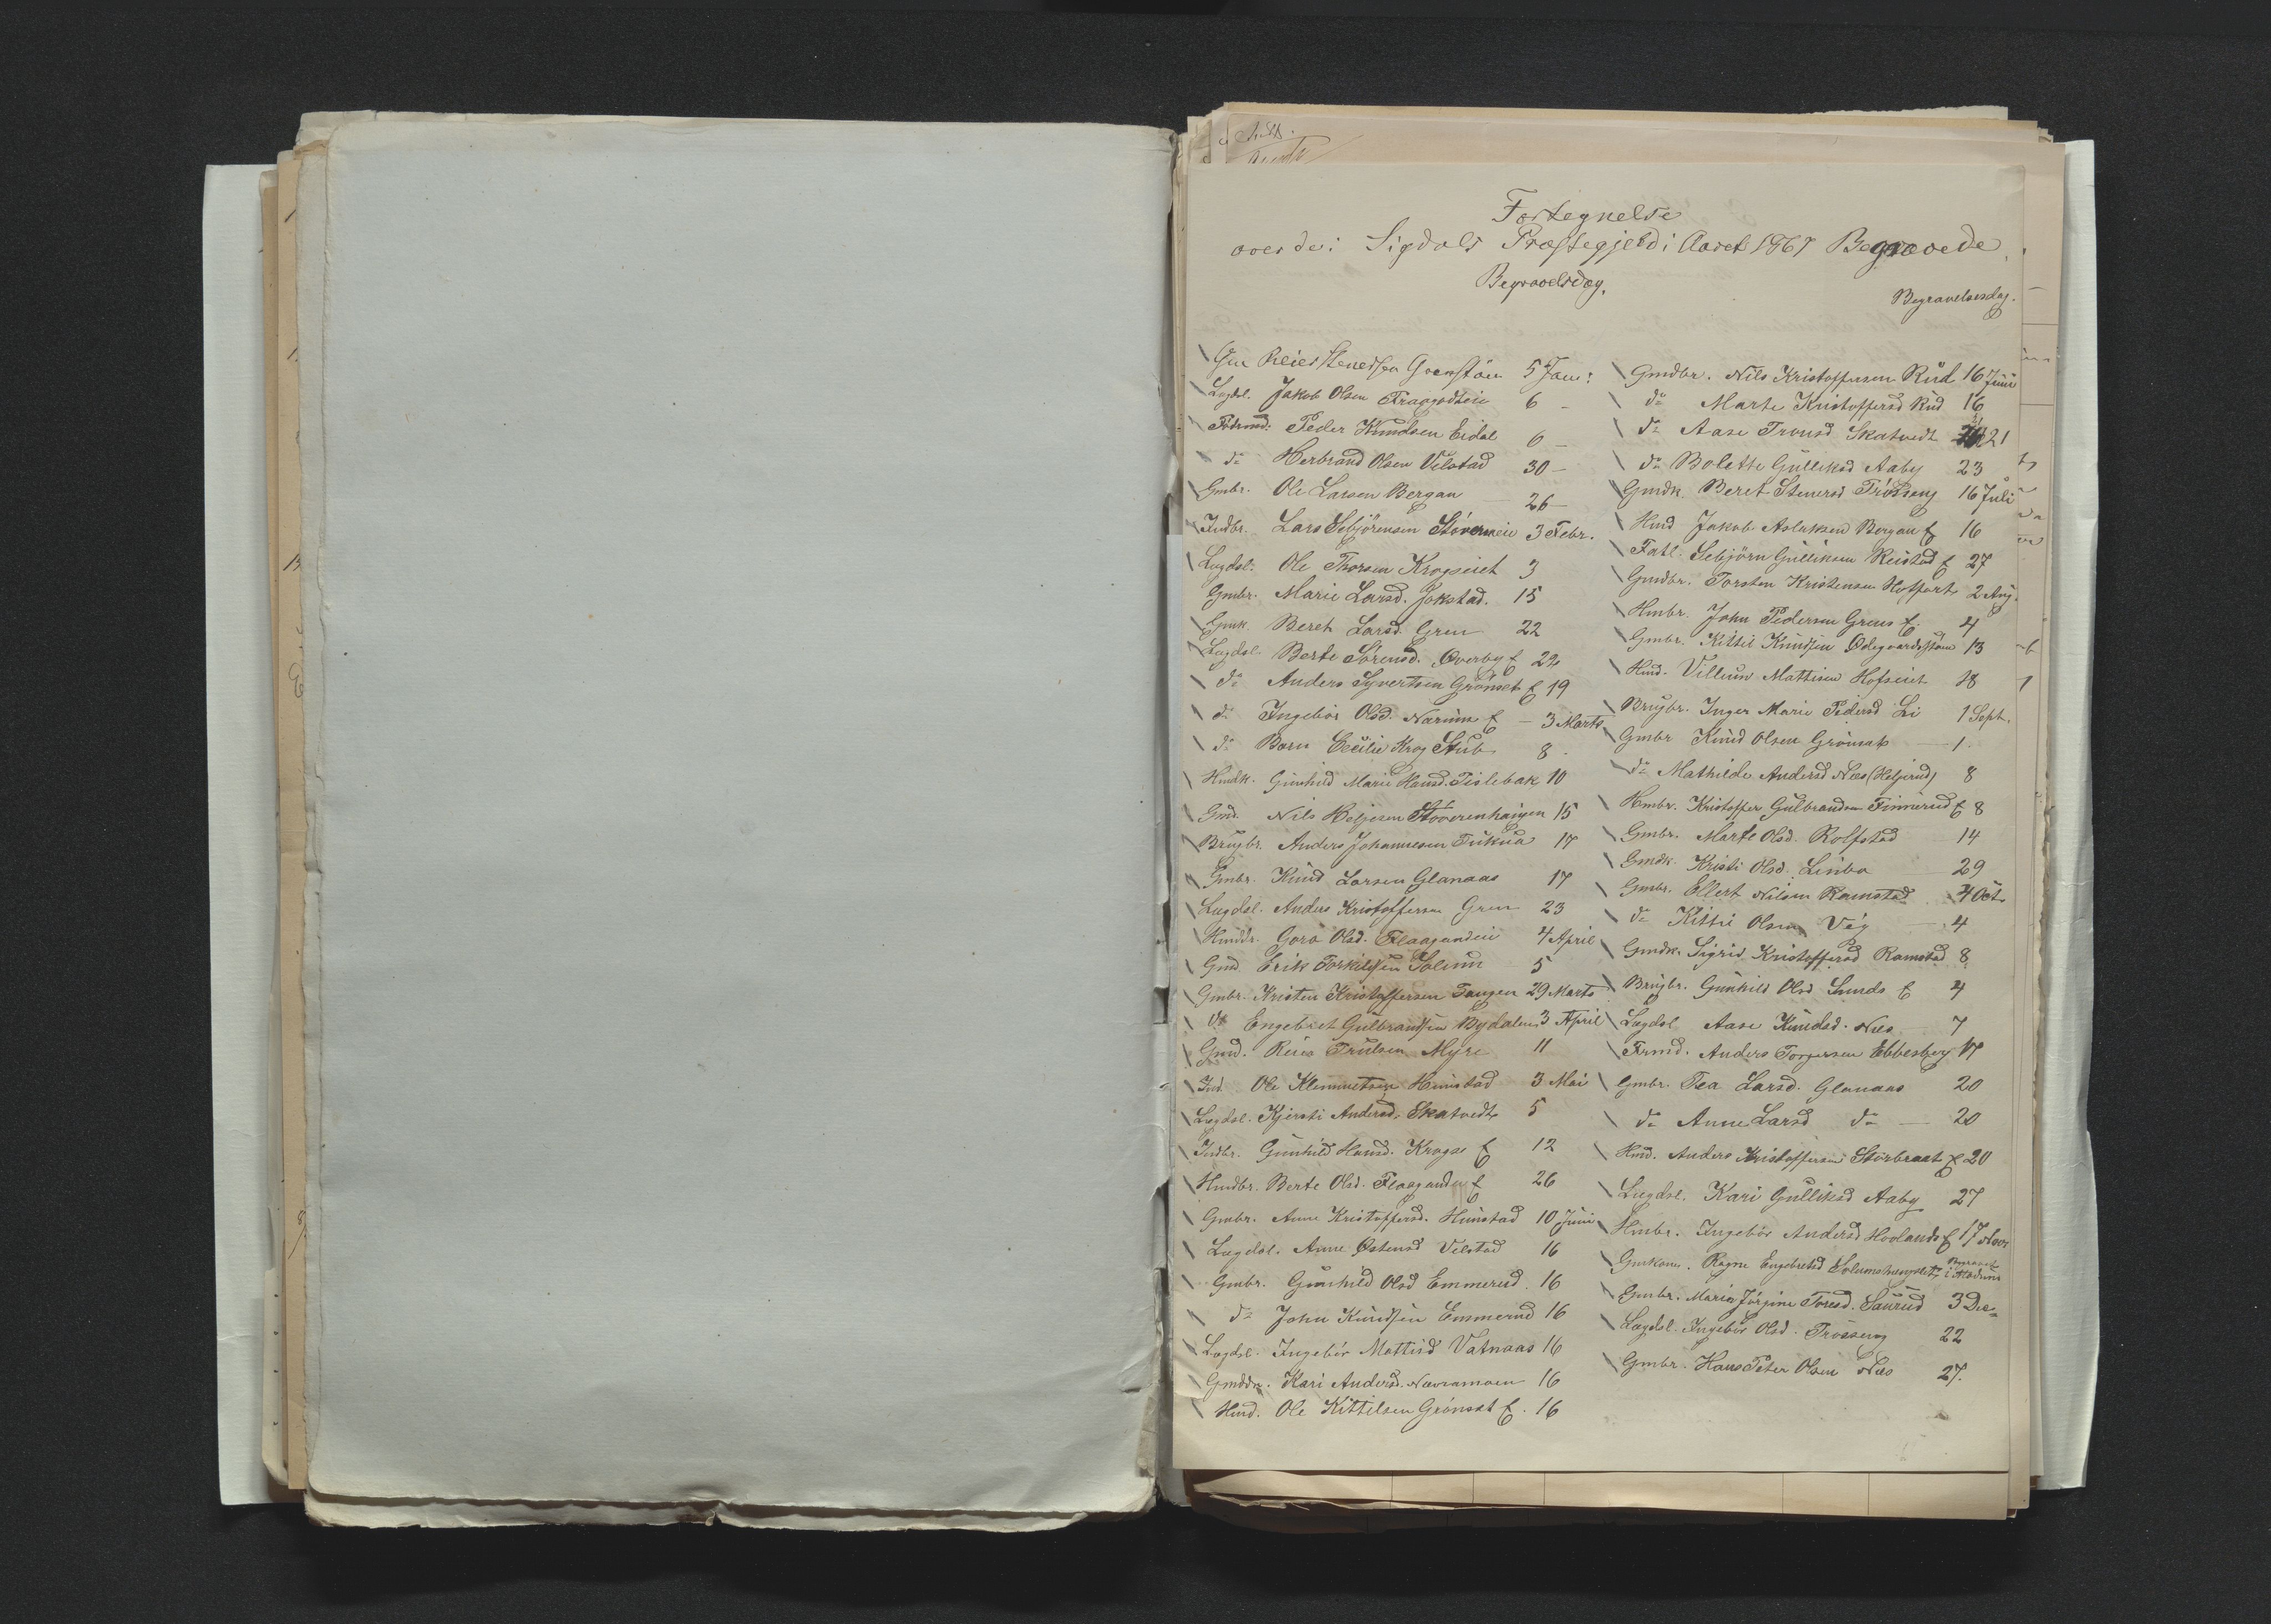 Fortegnelse
over de i Sigdals Præstegjeld i Aaret 1867 Begravede
Begravelsdag.
Begravelsesdag.
5 Jan:
Lægdsl. Jakob Olsen 6 -
Peder Knudsen Eidal 6 -
do Herbrand Olsen Velstad 30 -
Gmbr. Ole Larsen Bergan 26 -
Indbr. Lars Sebjörnsen 3 Febr.
Lægdsl. Ole Thorsen Krogseiet 3
Gmbr. Marie Larsd. Jokstad. 15
Gmk. Beret Larsd. Gren 22
Lægdsl. Berte Sörensd. Överby f 22
do Anders Syvertsen Grönset f 19
do Ingebör Olsd. Narum f - 3 Marts
do Barn Cecilie Krog Stub 8
Hmdk. Gunhild Marie Hansd. Tislebak 10
Gmd. Nils Helgesen Stöverenhaugen 15
Brugbr. Anders Johannesen Tukua 17
Gmbr. Knud Larsen Glanaas 17
Lægdsl. Anders Kristoffersen Gren 23
Goro Olsd. Flaagandeie 4 April
Gmd. Erik Torkildsen Solum 5
Gmbr. Kristen Kristoffersen Tangen 29 Marts
do Engebret Gulbrandsen Bydalen 3 April
Gmd. Reier Trulsen Myre 11
Ind. Ole Klemmetsen Hunstad 3 Mai
Lægdsl. Kjersti Andersd. Skatvedt 5
Indbr. Gunhild Hansd. Kragse f 12
Hmdbr. Berte Olsd. Flaaganden f 26
Gmbr. Anne Kristoffersd. Hunstad 10 Juni
Lægdsl. Anne Östensd Velstad 16
Gmbr. Gunhild Olsd Emmerud 16
do John Knudsen Emmerud 16
Lægdsl. Ingebör Mattisd Vatnaas 16
Kari Andersd. Narramoen 16
Hmd. Ole Kittilsen Grönset f. 16
Gmdbr. Nils Kristoffersen Rud 16 Juni
do Marte Kristoffersd Rud 16
do Aase Tronsd Skatvedt 21
do Bolette Gulliksd Aaby 23
Gmdk. Beret Stenersd Trösseng 16 Juli
Hmd Jakob Aslaksen Bergan f 16
Fatl. Sebjörn Gulliksen Reistad f 27
Gmdbr. Torsten Kristensen Hoffart 2 Aug.
Hmbr. John Pedersen Grens f. 4
Gmbr. Kittil Knudsen Ödegaardsstuen 13
Hmd. Villum Mattisen Hofseiet 18
Brugbr. Inger Marie Pedersd Li 1 Sept.
Gmbr Knud Olsen Grönset - 1
do Mathilde Andersd Nes (Helgerud) 8
Hmbr. Kristoffer Gulbrandsen Finnerud f 8
Gmbr. Marte Olsd. Rolfstad 14
Gmdk. Kristi Olsd. Linbo 29
Gmbr. Ellert Nilsen Ramstad 4 Oct.
do Kittil Olsen Vég - 4
Gmdk. Sigrid Kristoffersd Ramstad 8
Brugbr. Gunhild Olsd Lunds f 4
Lægdsl Aase Knudsd. Nes 7
Frmd. Anders Torgersen Ebbesberg 17
Gmbr. Tea Larsd. Glanaas 20
do Anne Larsd do - 20
Hmd. Anders Kristoffersen Storbraat f 20
Lægdsl. Kari Gulliksd Aaby 27
Hmbr. Ingebör Andersd Hovlands f 17 Nov
Gmkone. Ragne Engebretsd Solumshaugslet Begravet i Modum
Gmbr. Maria Jörgine Toresd. Saurud 3 Dec
Lægdsl. Ingebör Olsd. Trösseng 22
Gmbr. Hans Peter Olsen Nes 27.